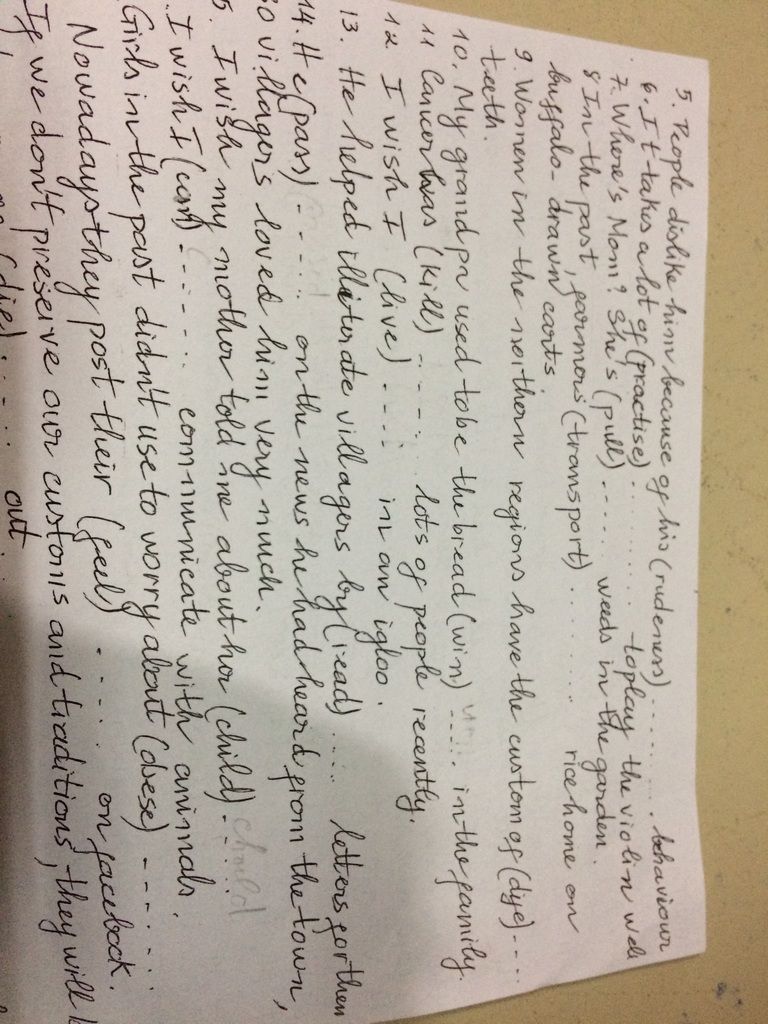 5. People dislike him because of his (rudeness) ......... behaviour
6. It takes a lot of (practise) ......... to play the violin well
7. Where's Mom? She's (pull) ...... weeds in the garden.
8 In the past, farmers (transport) ....... rice home on
buffalo-drawn carts
9. Women in the northern regions have the custom of (dye) ....
teeth.
10. My grandpa used to be the bread (win) ..... in the family.
11 Cancer has (kill) ...... lots of people recently.
12 I wish I (live) .... in an igloo.
13. He helped illiterate villagers by (read) .... letters for them
14. He (pass) ...... on the news he had heard from the town,
so villagers loved him very much.
5. I wish my mother told me about her (child) ..... child
I wish I (can) ....... communicate with animals.
Girls in the past didn't use to worry about (obese) .......
Nowadays they post their (feel) ...... on facebook.
If we don't preserve our customs and traditions, they will
(die) ...... out.